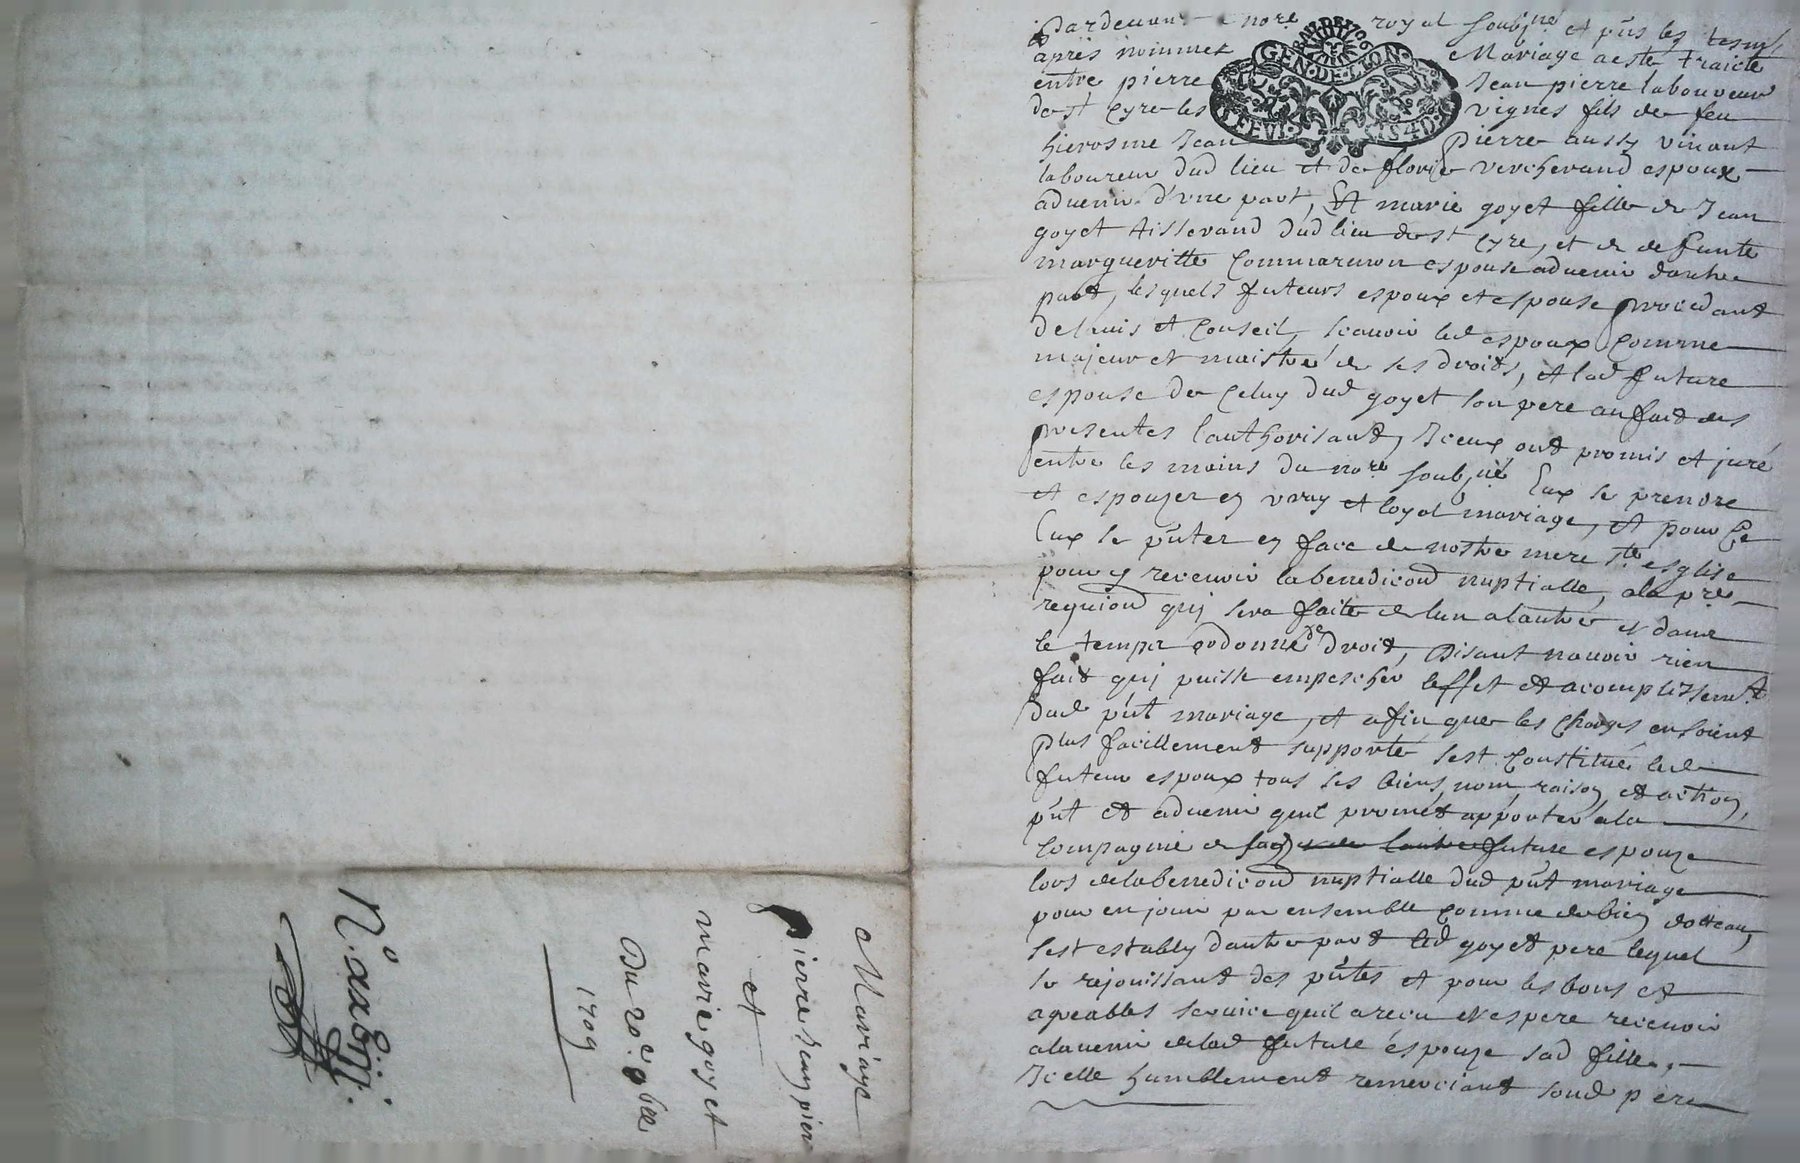 Pardevant nore royal soubzné et pñs les tesm
apres nommez Mariage a esté traicté
entre pierre Jean pierre laboureur
de st Cyre les vignes fils de feu
hierosme Jean pierre aussy vivant
laboureur dud lieu et de florie vercherand espoux
advenir d'vne part, Et marie goyet fille de Jean
goyet tisserand dud lieu de st Cyre, et de defunte
margueritte espouse advenir dautre
part, lesquels futeurs espoux et espouse procedant
de lauis et Conseil, scauoir led espoux Comme
majeur et maistre de ses droits, et lad future
espouse de Celuy dud goyet son pere au fait des
presentes lauthorisant, Iceux ont promis et juré
entre les mains du nore soubzné Eux se prendre
et espouzer en vray et loyal mariage, et pour Ce
Eux se pñter en face de nostre mere ste esglise
pour y recevoir la benediction nuptialle, a la pre
requiond quj sera faite de lun a lautre et dans
le temps ordonné de droit, disant nauoir rien
fait quj puisse empescher leffet et acomplissemt
dud pñt mariage, et afin que les Charges en soient
plus facillement supporté sest Constitué led
futeur espoux tous ses biens, nom, raison, et action,
pñt et aduenir quil promet apporter a la
Compagnie de future espouze
lors de la benediction nuptialle dud pñt mariage
pour en jouir par ensemble Comme de bien dotteaux,
sest estably dautre part led goyet pere lequel
se rejouissant des pñtes et pour les bons et
agreables seruice quil a receu et espere recevoir
a laduenir de lad future espouze sad fille,
Icelle humblement remerciant sond pere
Mariage
pierre Jean pier
et
marie goyet
Du 20e 9bre
1709
No